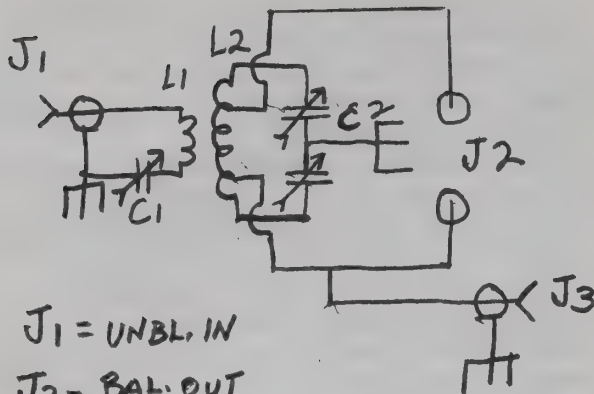 J1
L1
L2
C1
C2
J2
J3
J1 = UNBL. IN
J2 = BAL. OUT